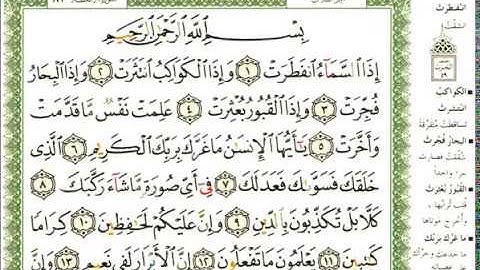 بِسْمِ ٱللَّهِ ٱلرَّحْمَٰنِ ٱلرَّحِيمِ
إِذَا ٱلسَّمَآءُ ٱنفَطَرَتْ ١ وَإِذَا ٱلْكَوَاكِبُ ٱنتَثَرَتْ ٢ وَإِذَا ٱلْبِحَارُ
فُجِّرَتْ ٣ وَإِذَا ٱلْقُبُورُ بُعْثِرَتْ ٤ عَلِمَتْ نَفْسٌ مَّا قَدَّمَتْ
وَأَخَّرَتْ ٥ يَٰٓأَيُّهَا ٱلْإِنسَٰنُ مَا غَرَّكَ بِرَبِّكَ ٱلْكَرِيمِ ٦ ٱلَّذِى
خَلَقَكَ فَسَوَّىٰكَ فَعَدَلَكَ ٧ فِىٓ أَىِّ صُورَةٍ مَّا شَآءَ رَكَّبَكَ ٨
كَلَّا بَلْ تُكَذِّبُونَ بِٱلدِّينِ ٩ وَإِنَّ عَلَيْكُمْ لَحَٰفِظِينَ ١٠ كِرَامًا
كَٰتِبِينَ ١١ يَعْلَمُونَ مَا تَفْعَلُونَ ١٢ إِنَّ ٱلْأَبْرَارَ لَفِى نَعِيمٍ ١٣ وَإِنَّ
انفطرت
انشقت
الكواكب
انتثرت
تساقطت متفرقة
البحار فجرت
شققت فصارت
القبور بعثرت
ما غرك بربك